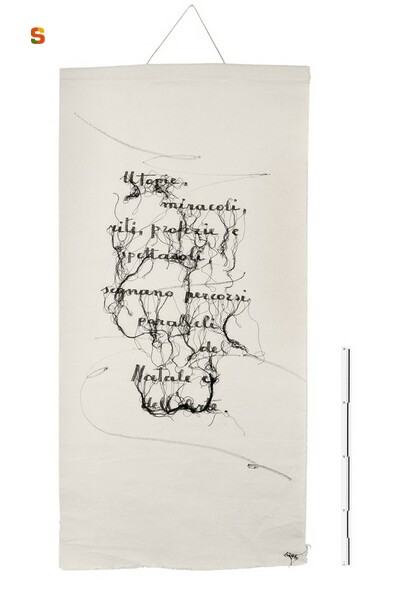 S
Utopie,
miracoli,
riti, profezie e
spettacoli
segnano percorsi
paralleli
del
Natale e
dell'arte.